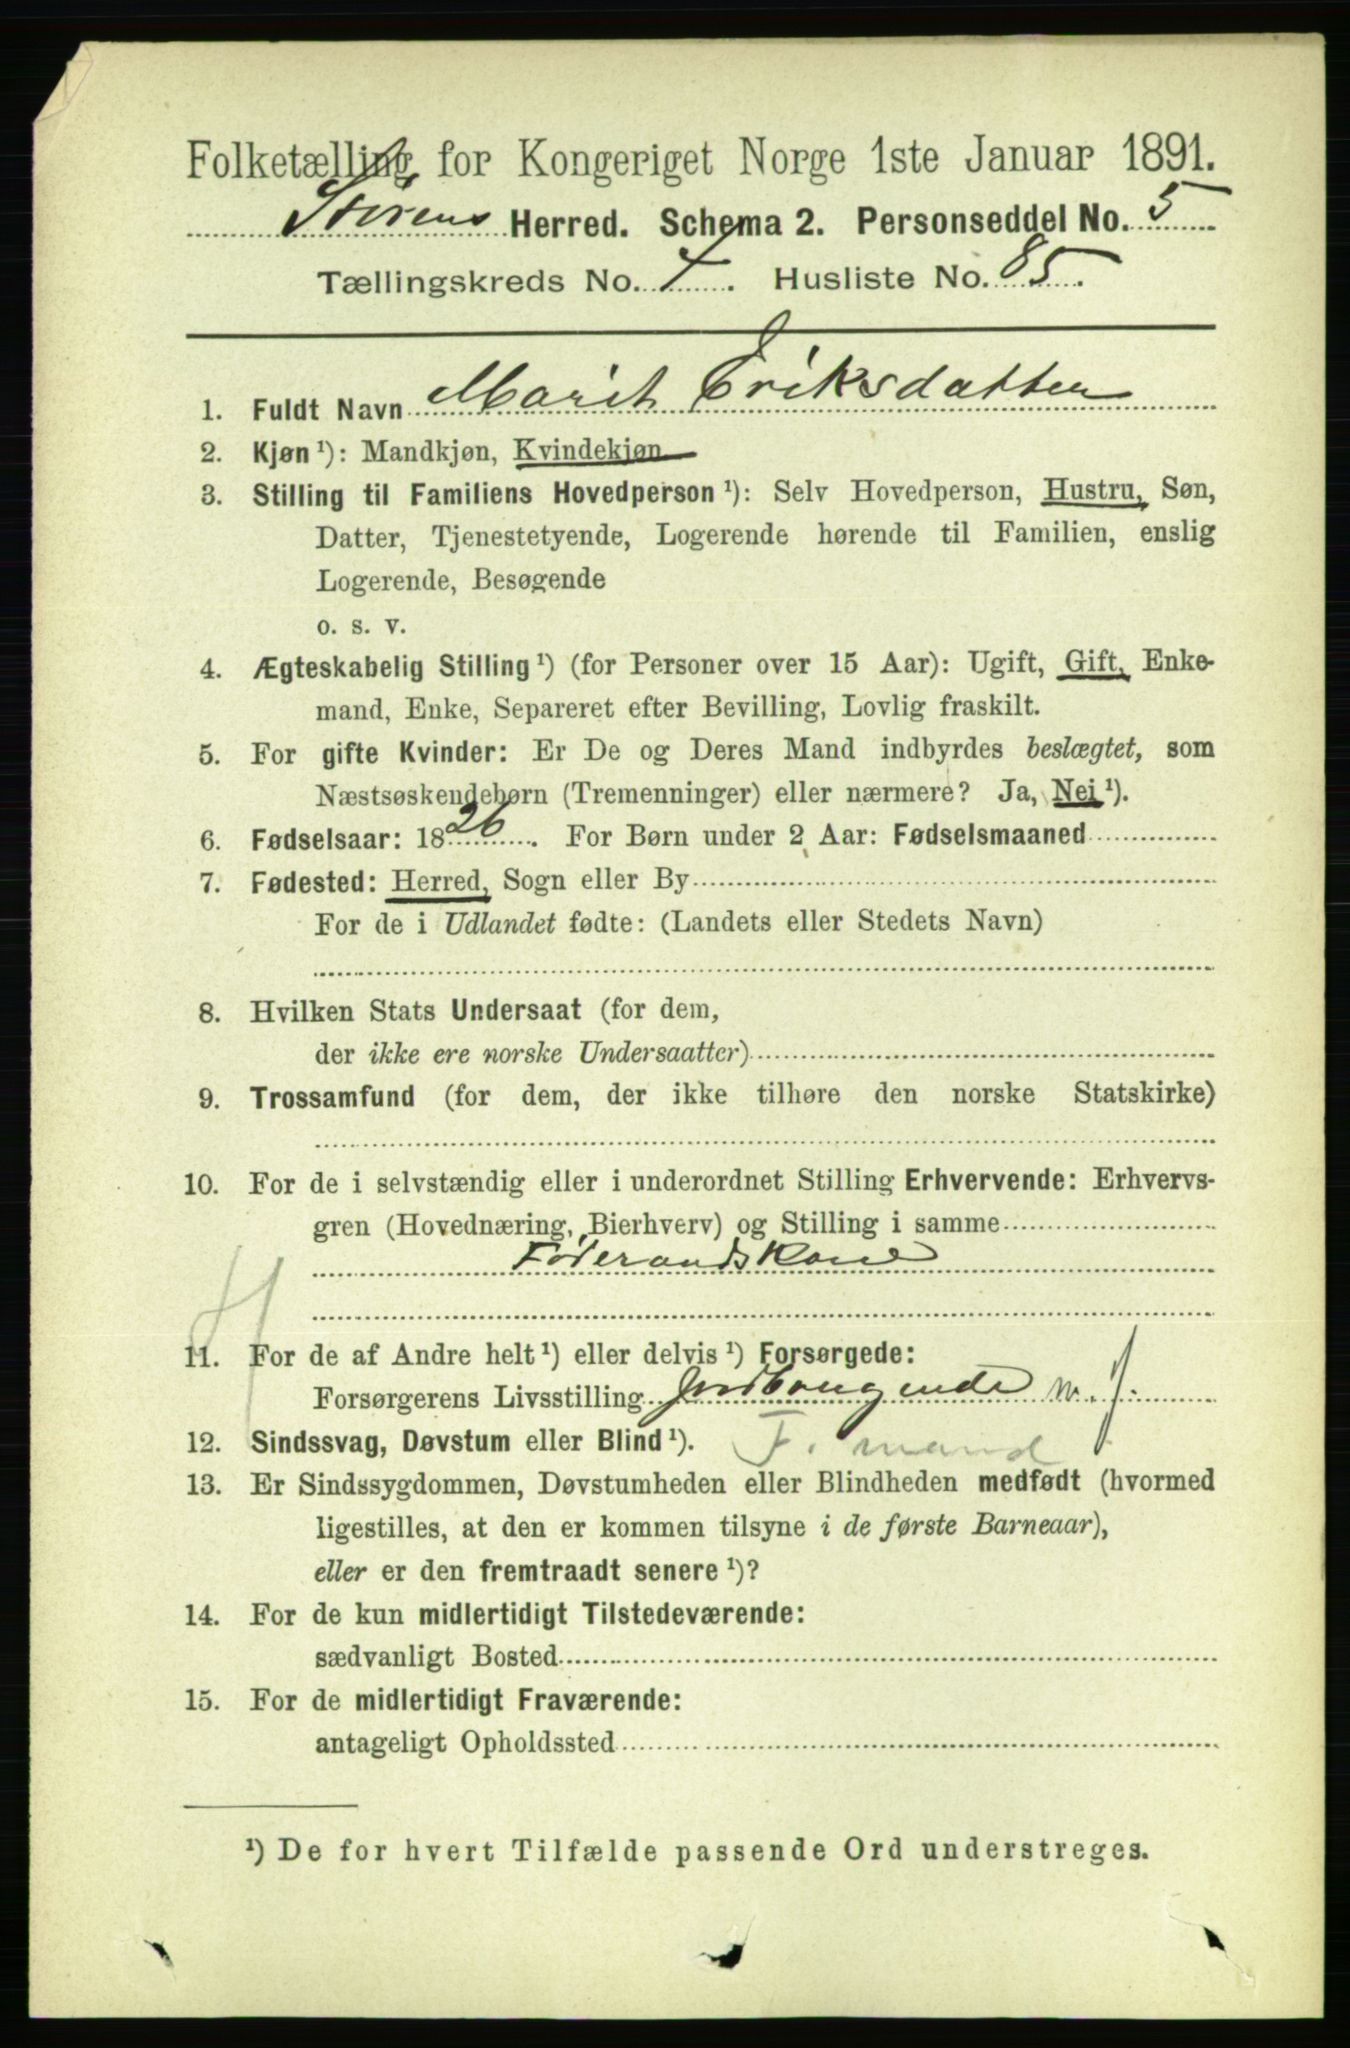 Folketælling for Kongeriget Norge 1ste Januar 1891.
Størens Herred. Schema 2. Personseddel No. 5
Tællingskreds No. 4. Husliste No. 85.
1. Fuldt Navn Marit Eriksdatter
2. Kjøn ¹): Mandkjøn, Kvindekjøn
3. Stilling til Familiens Hovedperson ¹): Selv Hovedperson, Hustru, Søn,
Datter, Tjenestetyende, Logerende hørende til Familien, enslig
Logerende, Besøgende
o. s. v.
4. Ægteskabelig Stilling ¹) (for Personer over 15 Aar): Ugift, Gift, Enke-
mand, Enke, Separeret efter Bevilling, Lovlig fraskilt.
5. For gifte Kvinder: Er De og Deres Mand indbyrdes beslægtet, som
Næstsøskendebørn (Tremenninger) eller nærmere? Ja, Nei ¹).
6. Fødselsaar: 1826. For Børn under 2 Aar: Fødselsmaaned
7. Fødested: Herred, Sogn eller By
For de i Udlandet fødte: (Landets eller Stedets Navn)
8. Hvilken Stats Undersaat (for dem,
der ikke ere norske Undersaatter)
9. Trossamfund (for dem, der ikke tilhøre den norske Statskirke)
10. For de i selvstændig eller i underordnet Stilling Erhvervende: Erhvervs-
gren (Hovednæring, Bierhverv) og Stilling i samme
Føderaadskone
11. For de af Andre helt ¹) eller delvis ¹) Forsørgede:
Forsørgerens Livsstilling Jordbrugende m. f.
12. Sindssvag, Døvstum eller Blind ¹). F. mand
13. Er Sindssygdommen, Døvstumheden eller Blindheden medfødt (hvormed
ligestilles, at den er kommen tilsyne i de første Barneaar),
eller er den fremtraadt senere ¹)?
14. For de kun midlertidigt Tilstedeværende:
sædvanligt Bosted
15. For de midlertidigt Fraværende:
antageligt Opholdssted
¹) De for hvert Tilfælde passende Ord understreges.